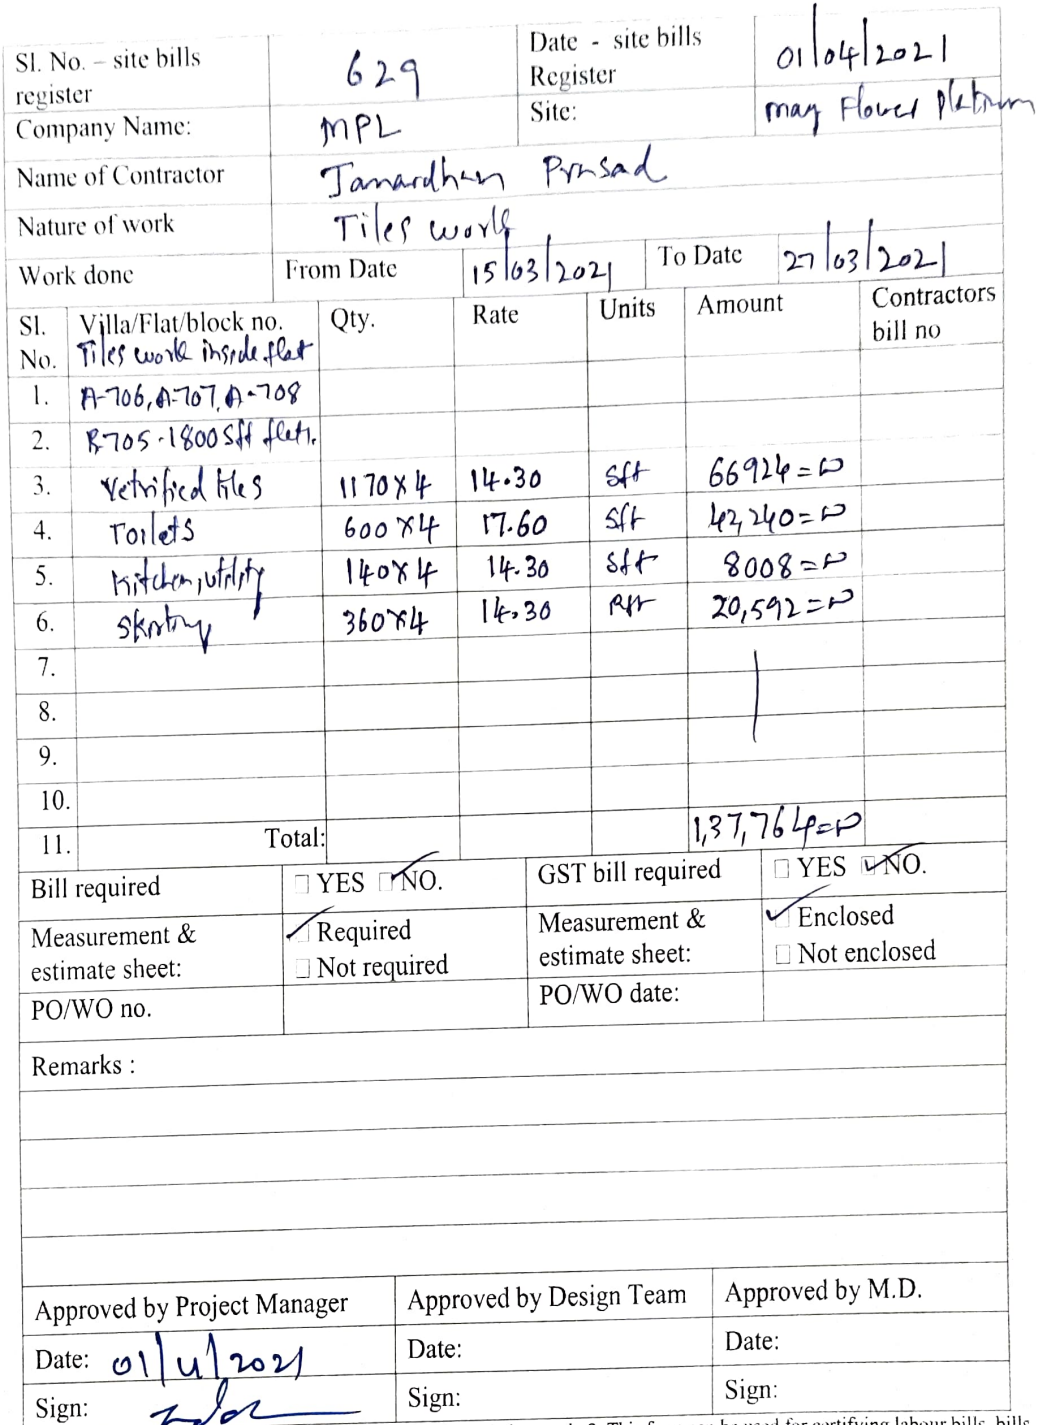 Sl. No. – site bills register 629 Date - site bills Register 01/04/2021
Company Name: MPL Site: may Flower Platinum
Name of Contractor Janardhan Prasad
Nature of work Tiles work
Work done From Date 15/03/2021 To Date 27/03/2021
Sl. No. Villa/Flat/block no. Qty. Rate Units Amount Contractors bill no
Tiles work inside flat
1. A-706, A-707, A-708
2. B705-1800 Sft flats.
3. Vetrified tiles 1170x4 14.30 sft 66924=00
4. Toilets 600x4 17.60 sft 42,240=00
5. Kitchen, utility 140x4 14.30 sft 8008=00
6. Skrting 360x4 14.30 Rft 20,592=00
7.
8.
9.
10.
11. Total: 1,37,764=00
Bill required ☐ YES ☑ NO. GST bill required ☐ YES ☑ NO.
Measurement & estimate sheet: ☑ Required ☐ Not required Measurement & estimate sheet: ☑ Enclosed ☐ Not enclosed
PO/WO no. PO/WO date:
Remarks :
Approved by Project Manager Approved by Design Team Approved by M.D.
Date: 01/4/2021 Date: Date:
Sign: Sign: Sign: